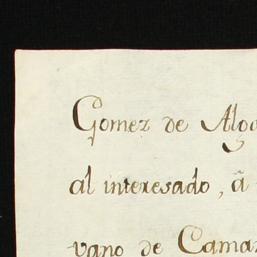 Gomez de Alga
al interesado, â
vano de Camar